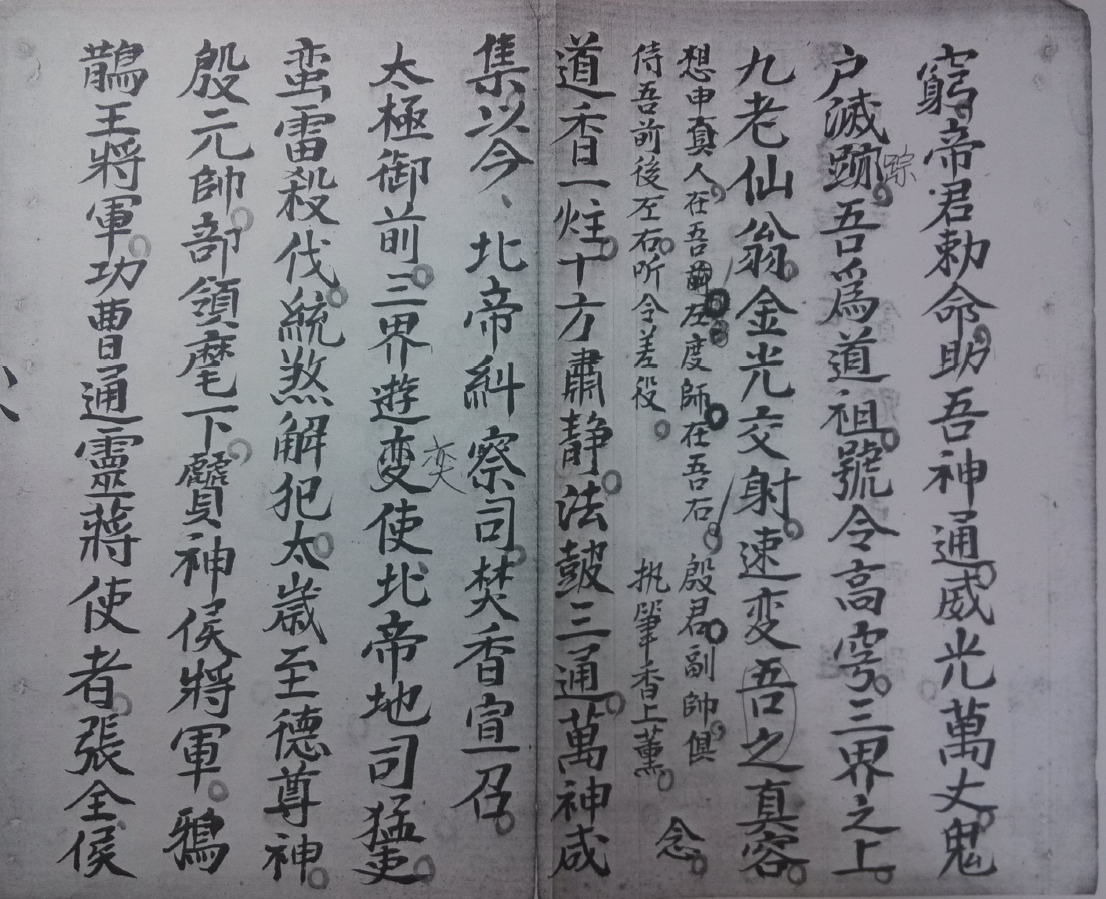 窮帝君勅命助吾神通威光萬丈鬼
户滅跡踪吾爲道祖號令高穹三界之上
九老仙翁金光交射速变吾之真容
想申真人在吾前左度師在吾右殷君副帥俱
侍吾前後左右听令差役 执筆香上薰 念
道香一炷十方肅静法鼓三通萬神咸
集以今、北帝糾察司焚香宣召
太極御前三界遊变奕使北帝地司猛吏
蛮雷殺伐統煞解犯太歲至德尊神
殷元帥部領麾下鸎神侯將軍鴉
鵲王將軍功曹通靈蔣使者張全侯